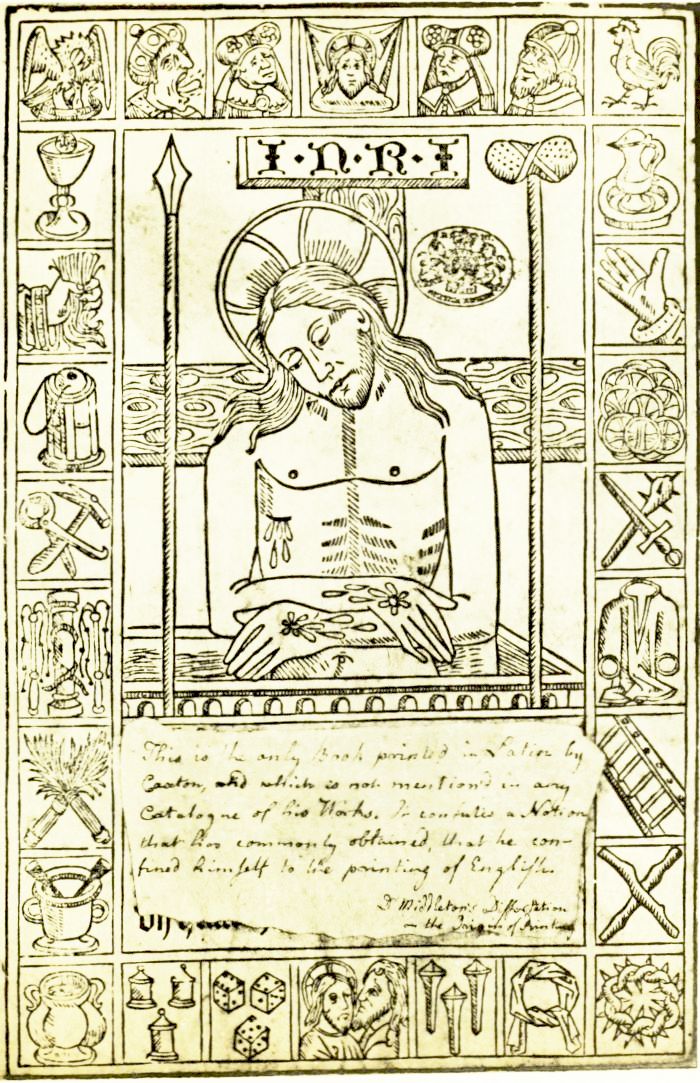 I·N·R·I
This is the only Book printed in Latin by
Caxton, and which is not mention'd in any
Catalogue of his Works. It confutes a Notion
that has commonly obtained, that he con-
fined himself to the printing of English.
Dr Middleton's Dissertation
the Origin of Printing